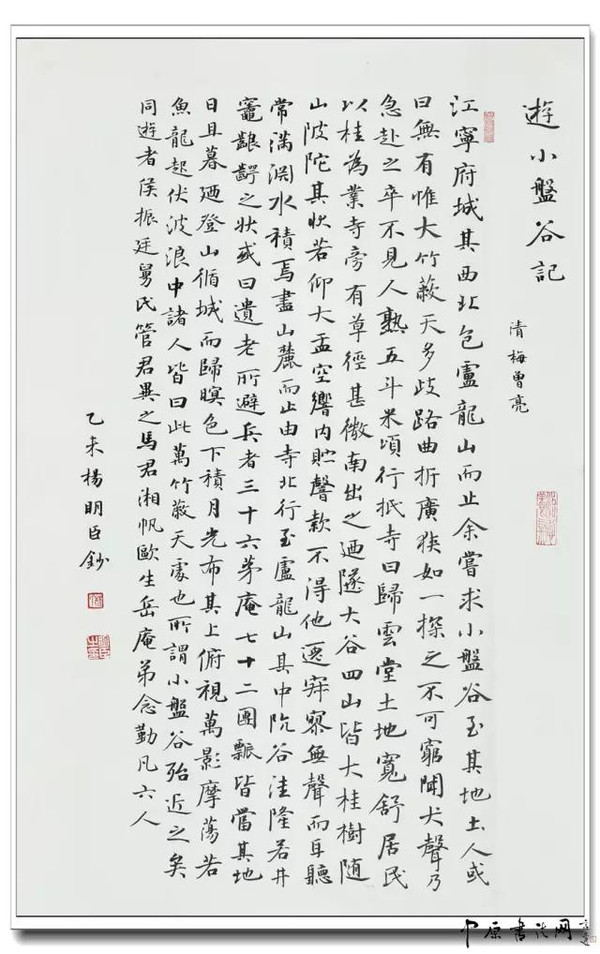 遊小盤谷記
清 梅曾亮
江寧府城其西北包盧龍山而止余嘗求小盤谷至其地土人或
曰無有惟大竹蔽天多歧路曲折廣狹如一探之不可窮聞犬聲乃
急赴之卒不見人熟五斗米頃行抵寺曰歸雲堂土地寬舒居民
以桂為業寺旁有草徑甚微南出之迺隧大谷四山皆大桂樹隨
山陂陀其狀若仰大盂空響內貯謦欬不得他逸寂寥無聲而耳聽
常滿淵水積焉盡山麓而止由寺北行至盧龍山其中阬谷洼隆若井
竈齦齶之狀或曰遺老所避兵者三十六茅庵七十二團瓢皆當其地
日且暮迺登山循城而歸暝色下積月光布其上俯視萬影摩蕩若
魚龍起伏波浪中諸人皆曰此萬竹蔽天處也所謂小盤谷殆近之矣
同遊者侯振廷舅氏管君異之馬君湘帆歐生岳庵弟念勤凡六人
乙未楊明臣鈔
中原书法网